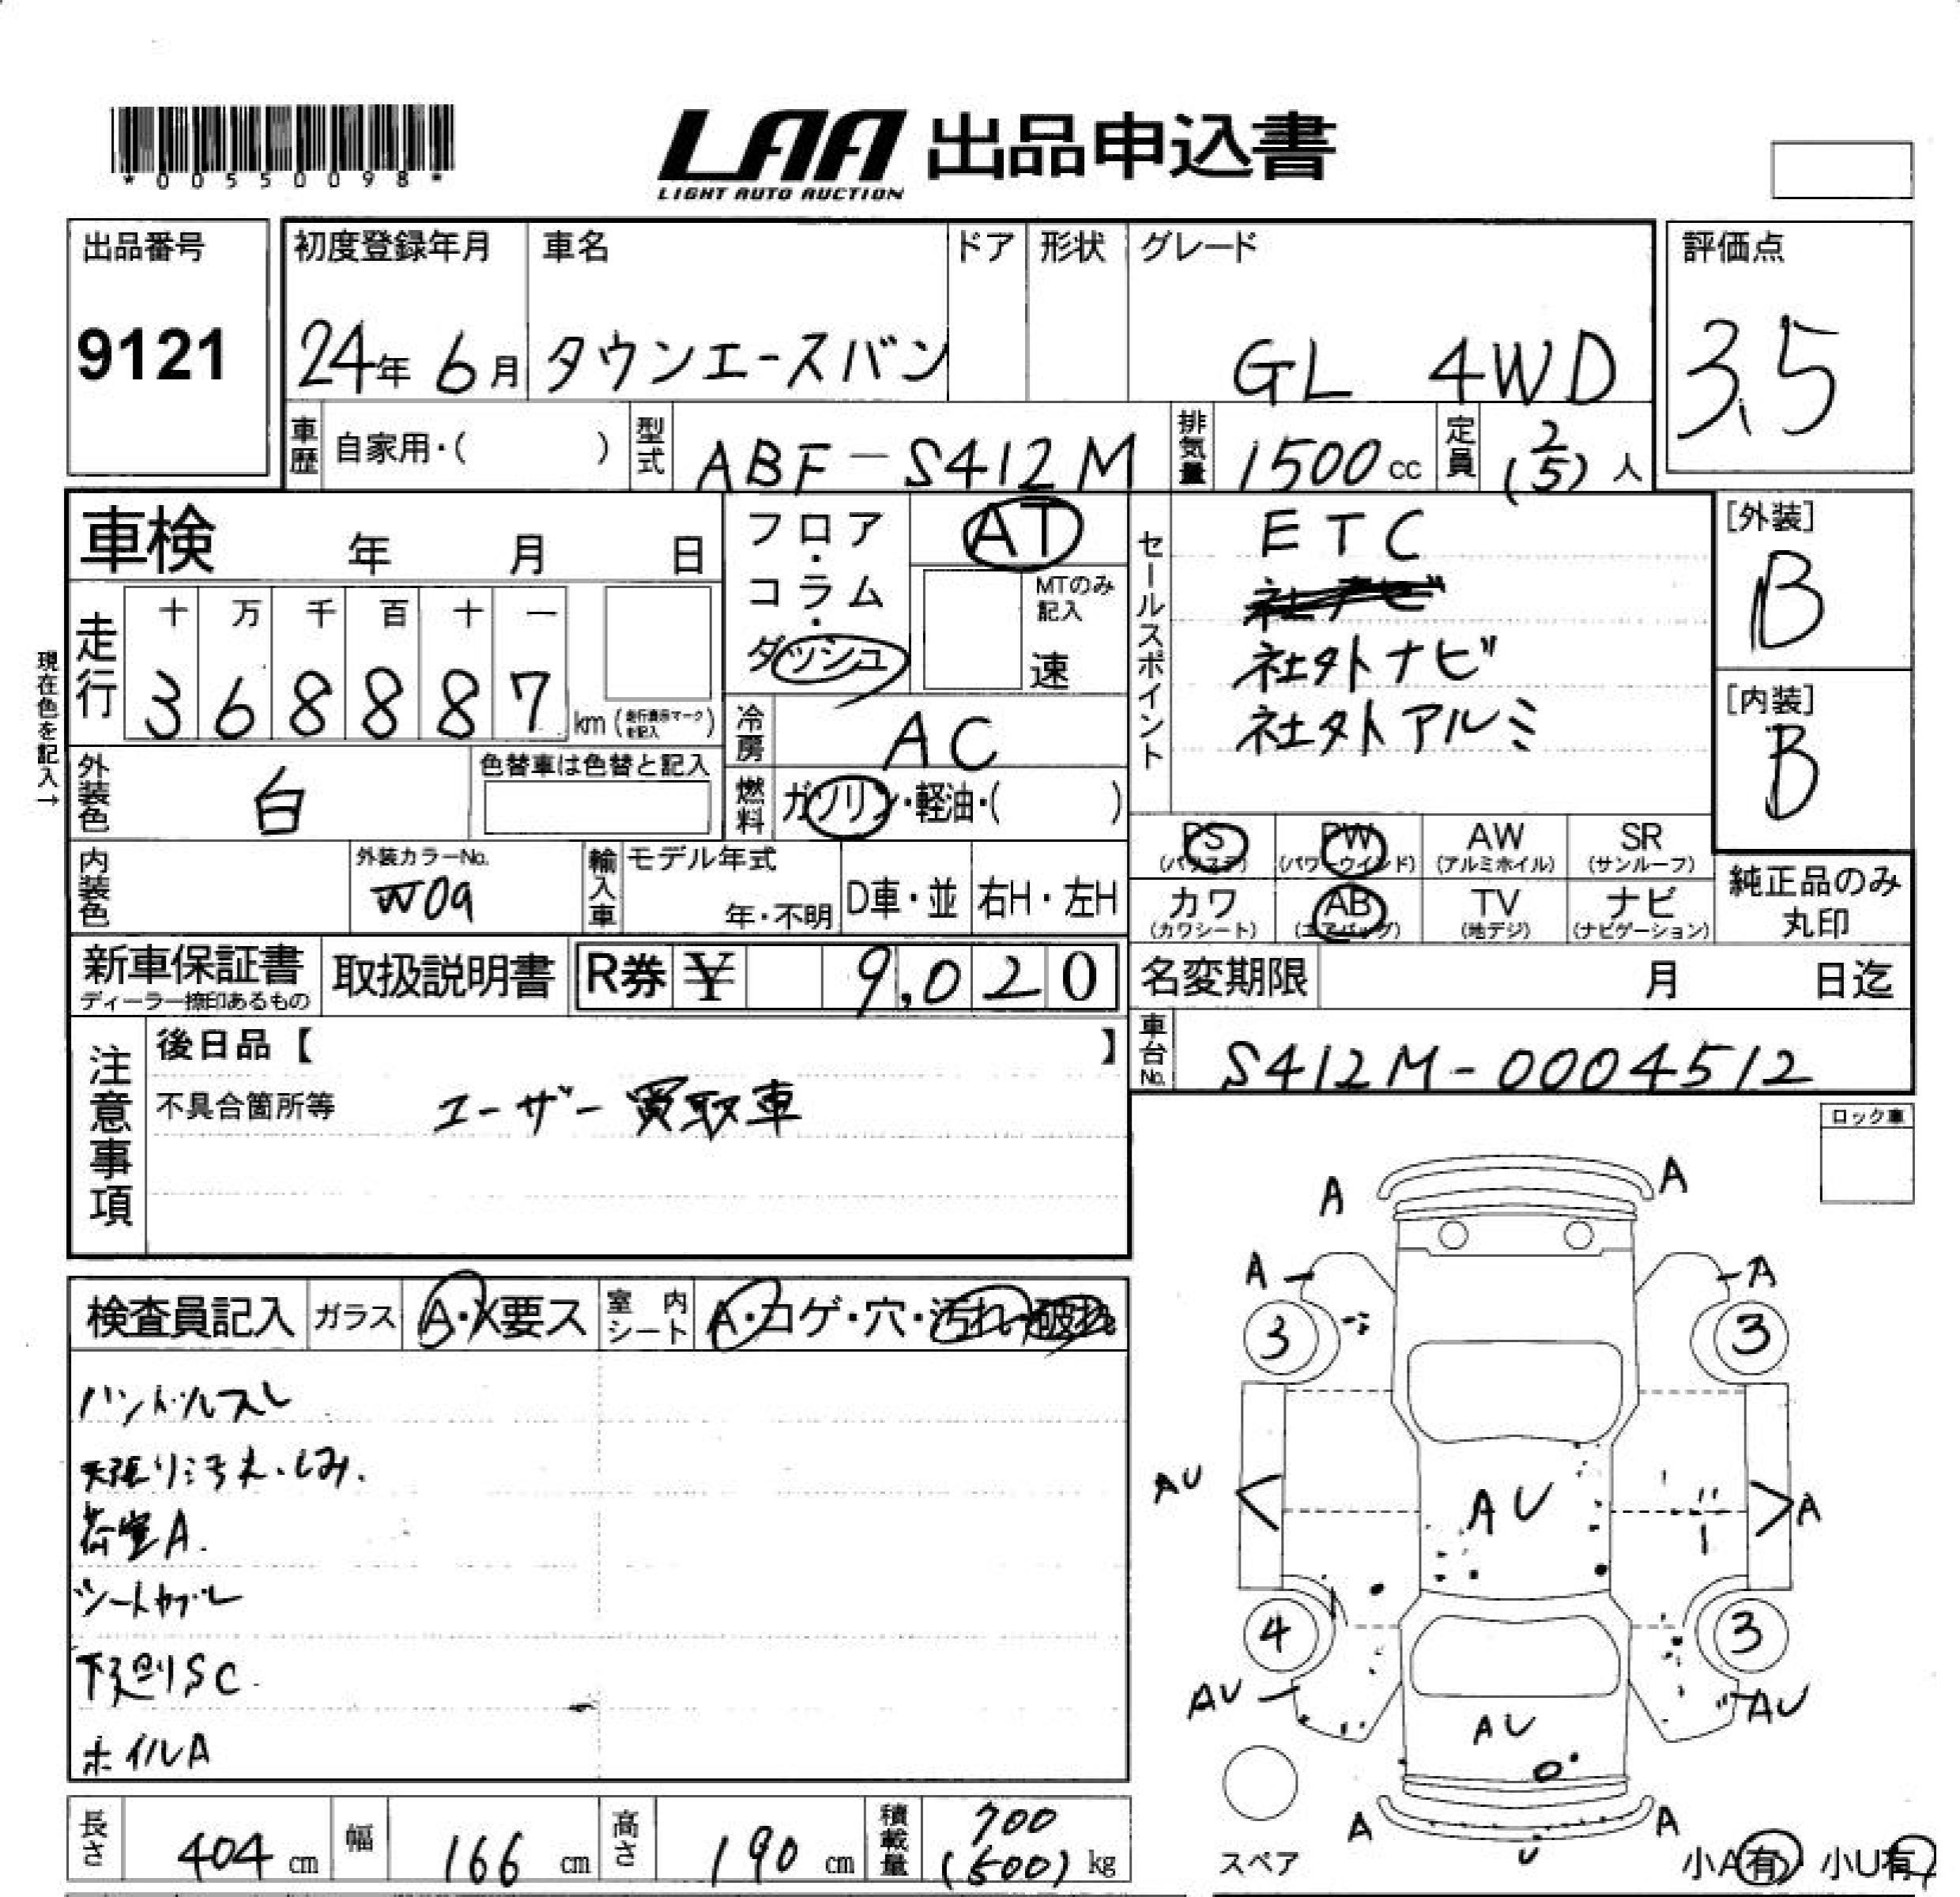 *00550098*
LAA 出品申込書
LIGHT AUTO AUCTION
出品番号
9121
初度登録年月 車名 ドア 形状 グレード
24年 6月 タウンエースバン GL 4WD
評価点
3.5
車歴 自家用・( ) 型式 ABF-S412M 排気量 1500cc 定員 2(5)人
車検 年 月 日
フロア・コラム・ダッシュ
AT
MTのみ記入
速
セールスポイント
ETC
社外ナビ
社外アルミ
[外装]
B
[内装]
B
現在色を記入→
走行 十 万 千 百 十 一
368887 km (走行表示マークを記入)
冷房 AC
外装色 白 色替車は色替と記入
燃料 ガソリン・軽油・( )
PS (パワステ) PW (パワーウインド) AW (アルミホイル) SR (サンルーフ)
カワ (カワシート) AB (エアバッグ) TV (地デジ) ナビ (ナビゲーション)
純正品のみ丸印
内装色 外装カラーNo. W09 輸入車 モデル年式 年・不明 D車・並 右H・左H
新車保証書 取扱説明書 R券 ¥ 9,020
ディーラー捺印あるもの
名変期限 月 日迄
車台No. S412M-0004512
注意事項
後日品【 】
不具合箇所等 ユーザー買取車
ロック車
検査員記入 ガラス A・X要ス 室内シート A・コゲ・穴・汚れ・破れ
ハンドルスレ
天張り汚れ・しみ.
荷室A.
シートカブレ
下廻りSC.
ホイルA
A A
A A
3 3
AU AU A
4 3
AU AU AU
A U A
スペア
小A有・小U有
長さ 404cm 幅 166cm 高さ 190cm 積載量 700(500)kg